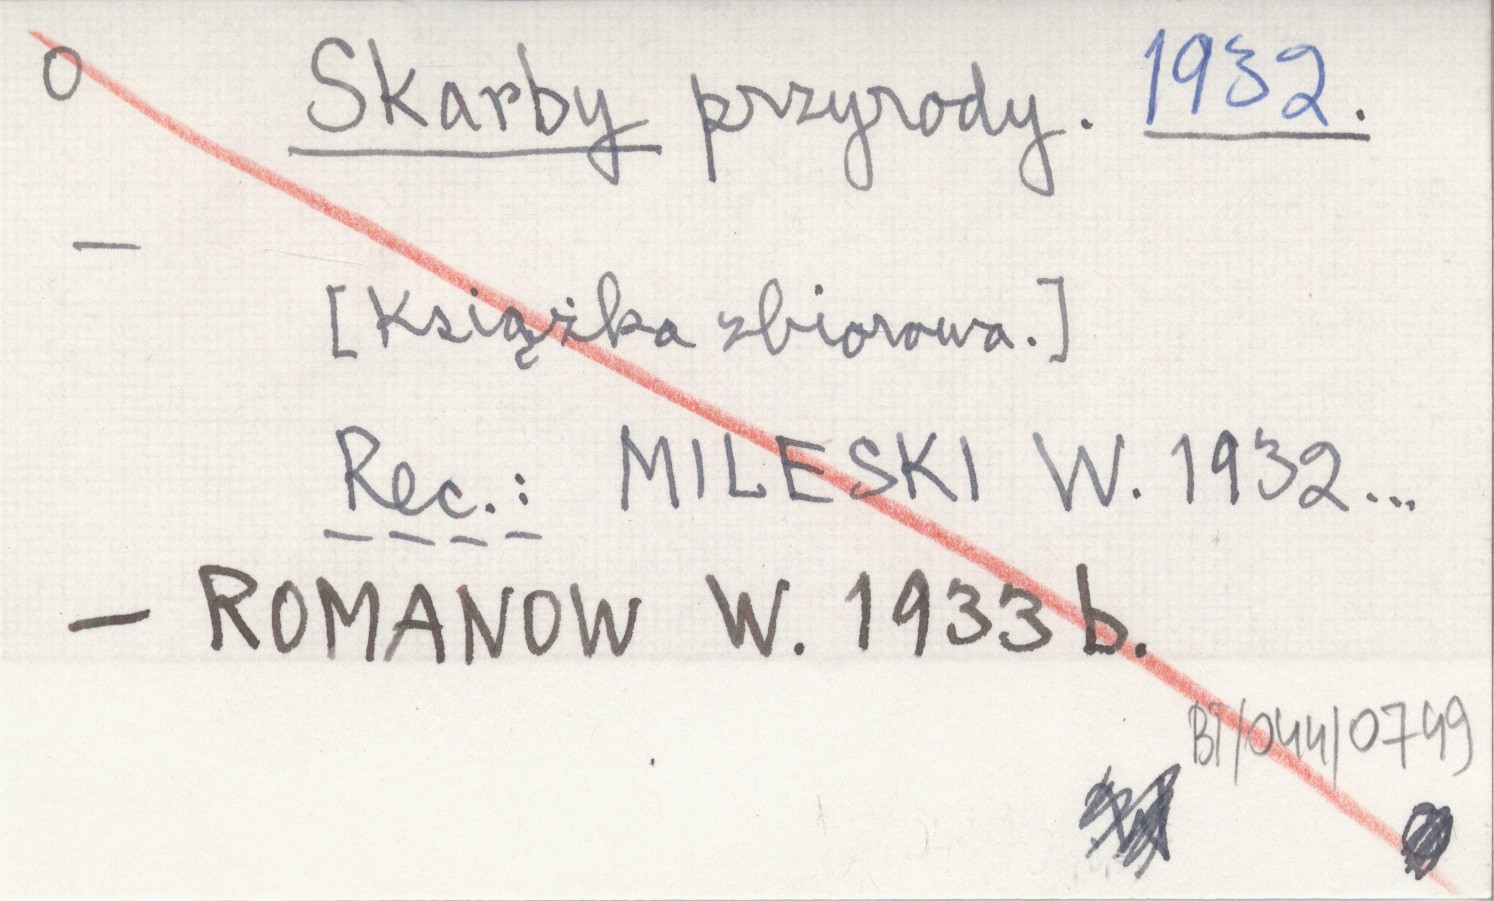 O Skarby przyrody. 1932.
—
[Książka zbiorowa.]
Rec.: MILESKI W. 1932...
— ROMANOW W. 1933b.
BI/044/0749